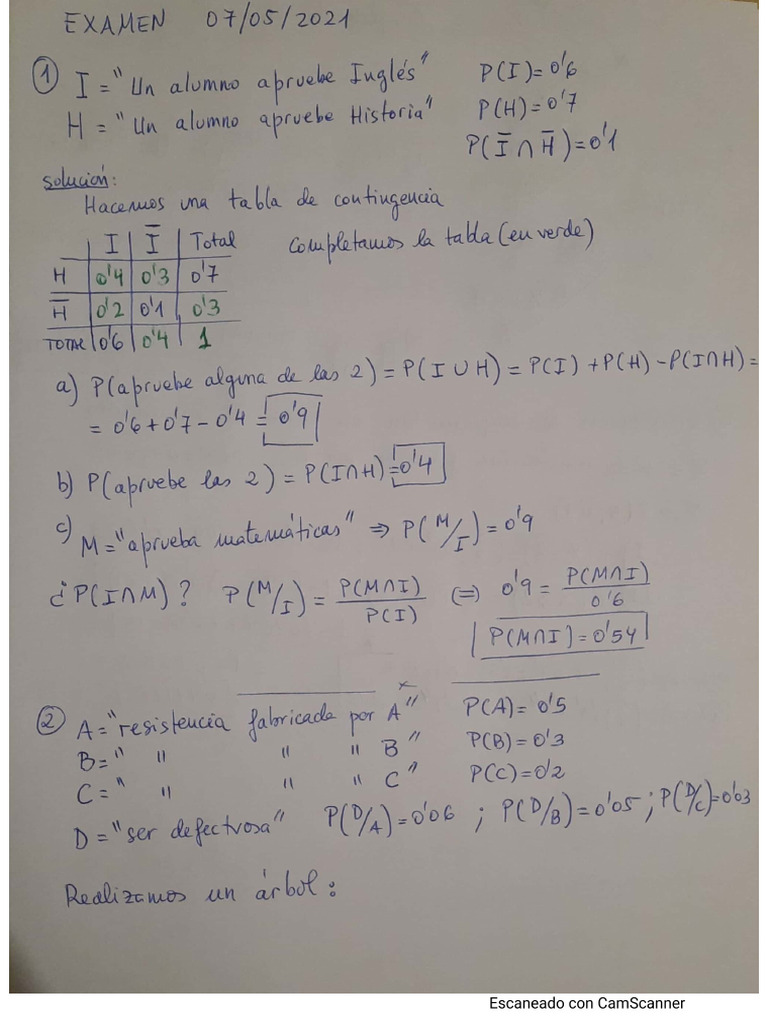 EXAMEN 07/05/2021
① I = "Un alumno apruebe Inglés" P(I)=0'6
H = "Un alumno apruebe Historia" P(H)=0'7
P(I̅ ∩ H̅)=0'1
Solución:
Hacemos una tabla de contingencia
I I̅ Total Completamos la tabla (en verde)
H 0'4 0'3 0'7
H̅ 0'2 0'1 0'3
TOTAL 0'6 0'4 1
a) P(apruebe alguna de las 2) = P(I ∪ H) = P(I) + P(H) - P(I∩H) =
= 0'6 + 0'7 - 0'4 = 0'9
b) P(apruebe las 2) = P(I∩H) = 0'4
c) M = "aprueba matemáticas" ⇒ P(M/I) = 0'9
¿P(I∩M)? P(M/I) = P(M∩I)/P(I) ⇔ 0'9 = P(M∩I)/0'6
P(M∩I) = 0'54
② A = "resistencia fabricada por A" P(A) = 0'5
B = " " " " B" P(B) = 0'3
C = " " " " C" P(C) = 0'2
D = "ser defectuosa" P(D/A) = 0'06 ; P(D/B) = 0'05 ; P(D/C) = 0'03
Realizamos un árbol:
Escaneado con CamScanner